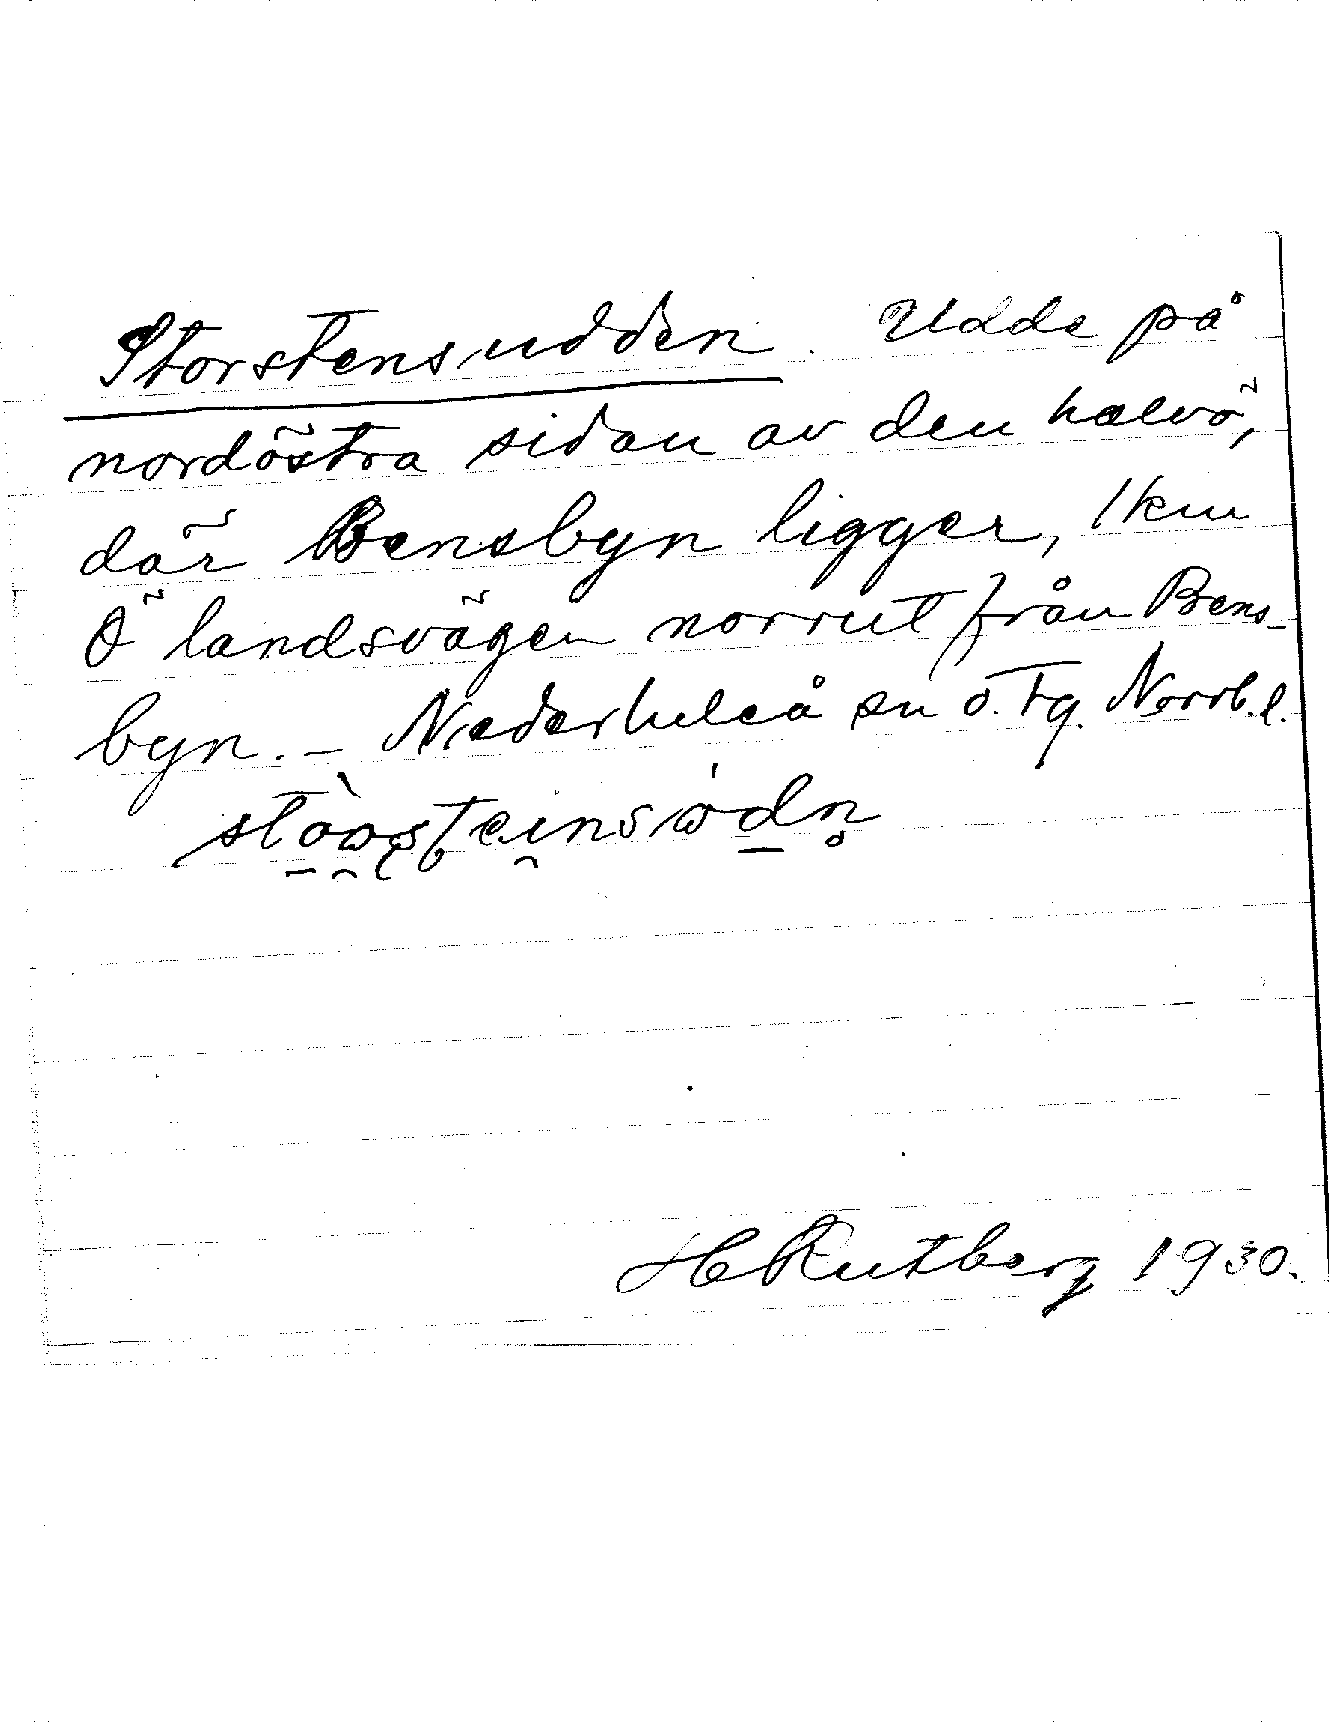 Storstensudden. Udde på
nordöstra sidan av den halvö,
där Bensbyn ligger, 1 km
Ö landsvägen norrut från Bens-
byn. - Nederluleå sn ö. tg. Norrb. l.
H Rutberg 1930.